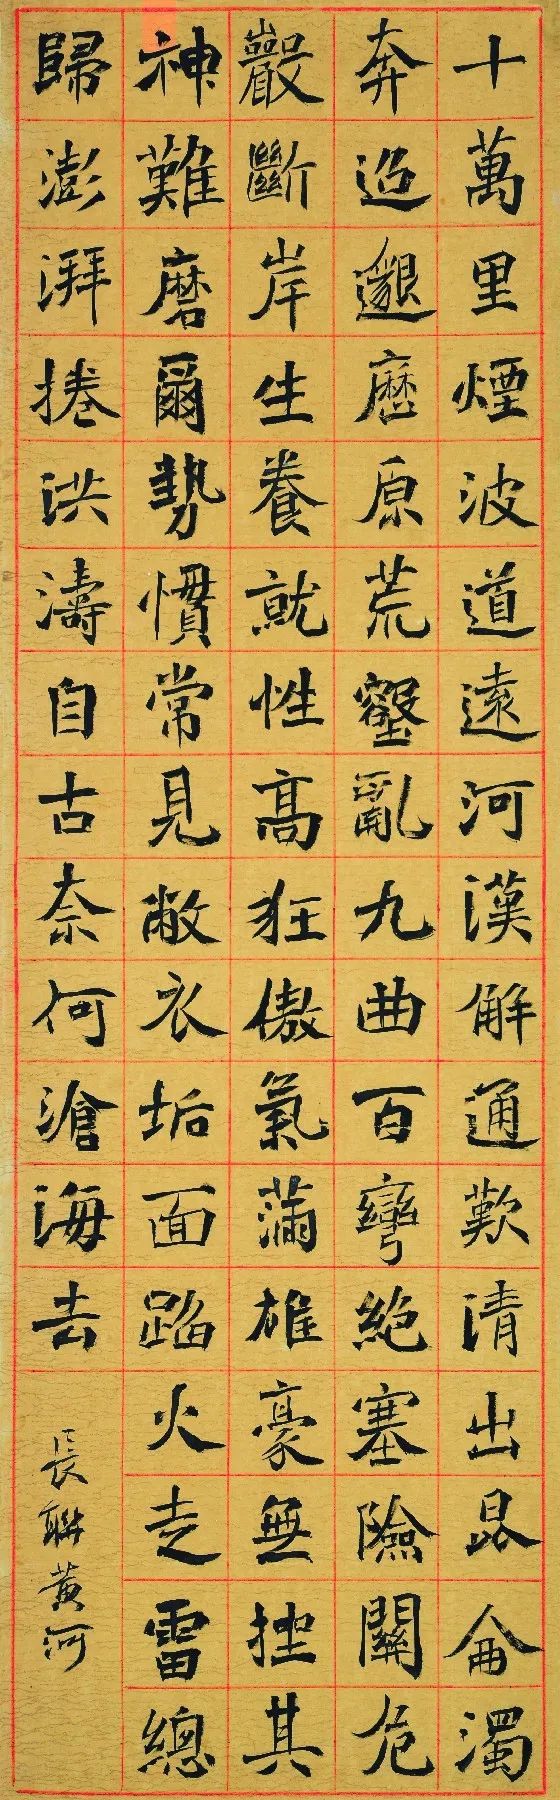 十萬里煙波道遠河漢解通歎清出昆侖濁
奔迢邈歷原荒壑亂九曲百彎絕塞險關危
巖斷岸生養就性高狂傲氣滿雄豪無挫其
神難磨爾勢慣常見敝衣垢面蹈火走雷總
歸澎湃捲洪濤自古奈何滄海去
長聯黃河